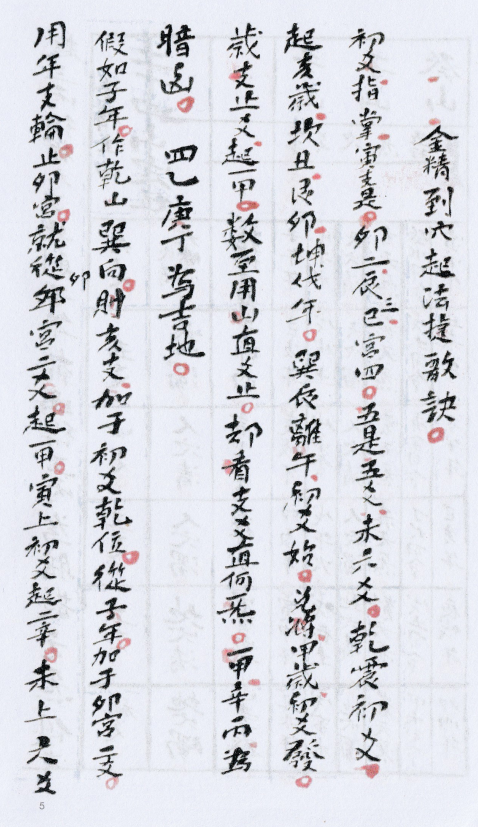 金精到穴起法捷歌訣
初爻指掌寅支是卯二辰三巳宮四五是五爻未六爻乾震初爻
起亥歲坎丑艮卯坤伐年巽辰離午初爻始兌將甲歲初爻發
歲支止爻起一甲數至用山直爻止却看支爻直何炁一甲辛丙為
暗凶 四乙庚丁為吉地
假如子年作乾山巽向則亥支加于初爻乾位從子年加于卯宮二爻
用年支輪止卯宮就從卯宮二爻起一甲寅上初爻起二辛未上六爻
卯
5